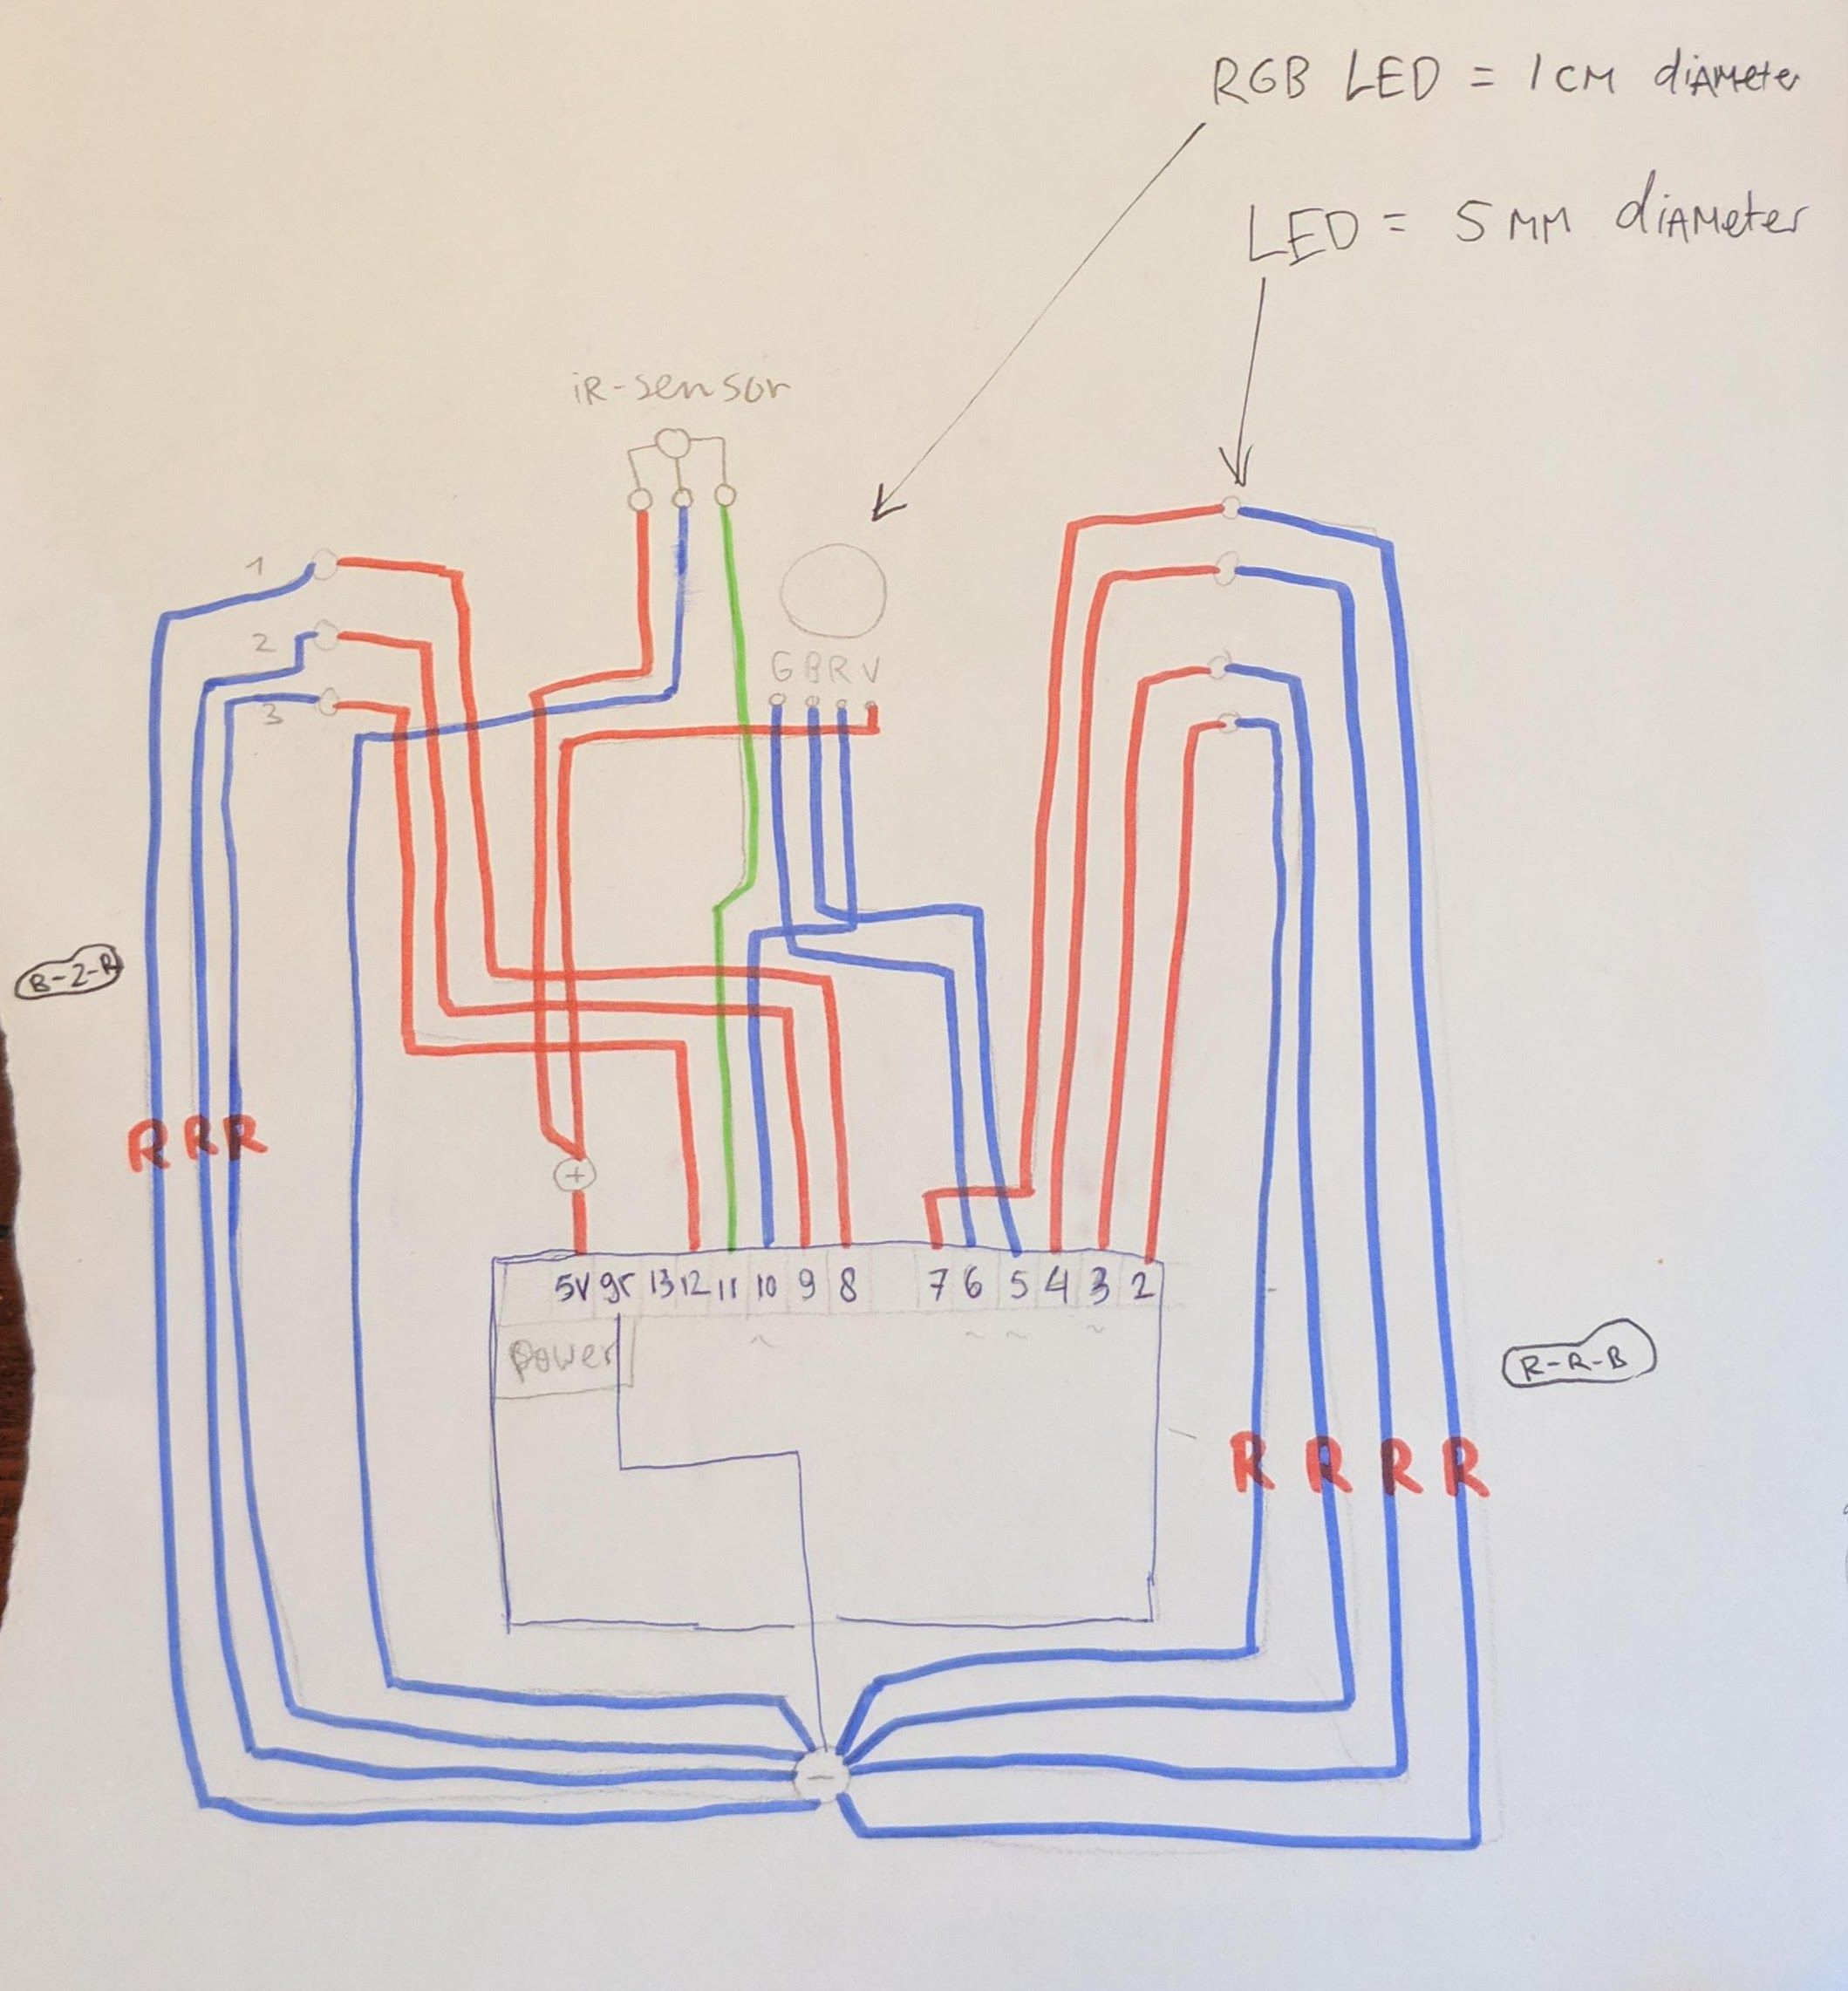 RGB LED = 1 CM diAMete
LED = 5 MM diAMeter
iR-sensor
1
2
3
G B R V
B-2-R
R R R
+
5V gr 13 12 11 10 9 8 7 6 5 4 3 2
~ ~ ~ ~
power
R-R-B
R R R R
-